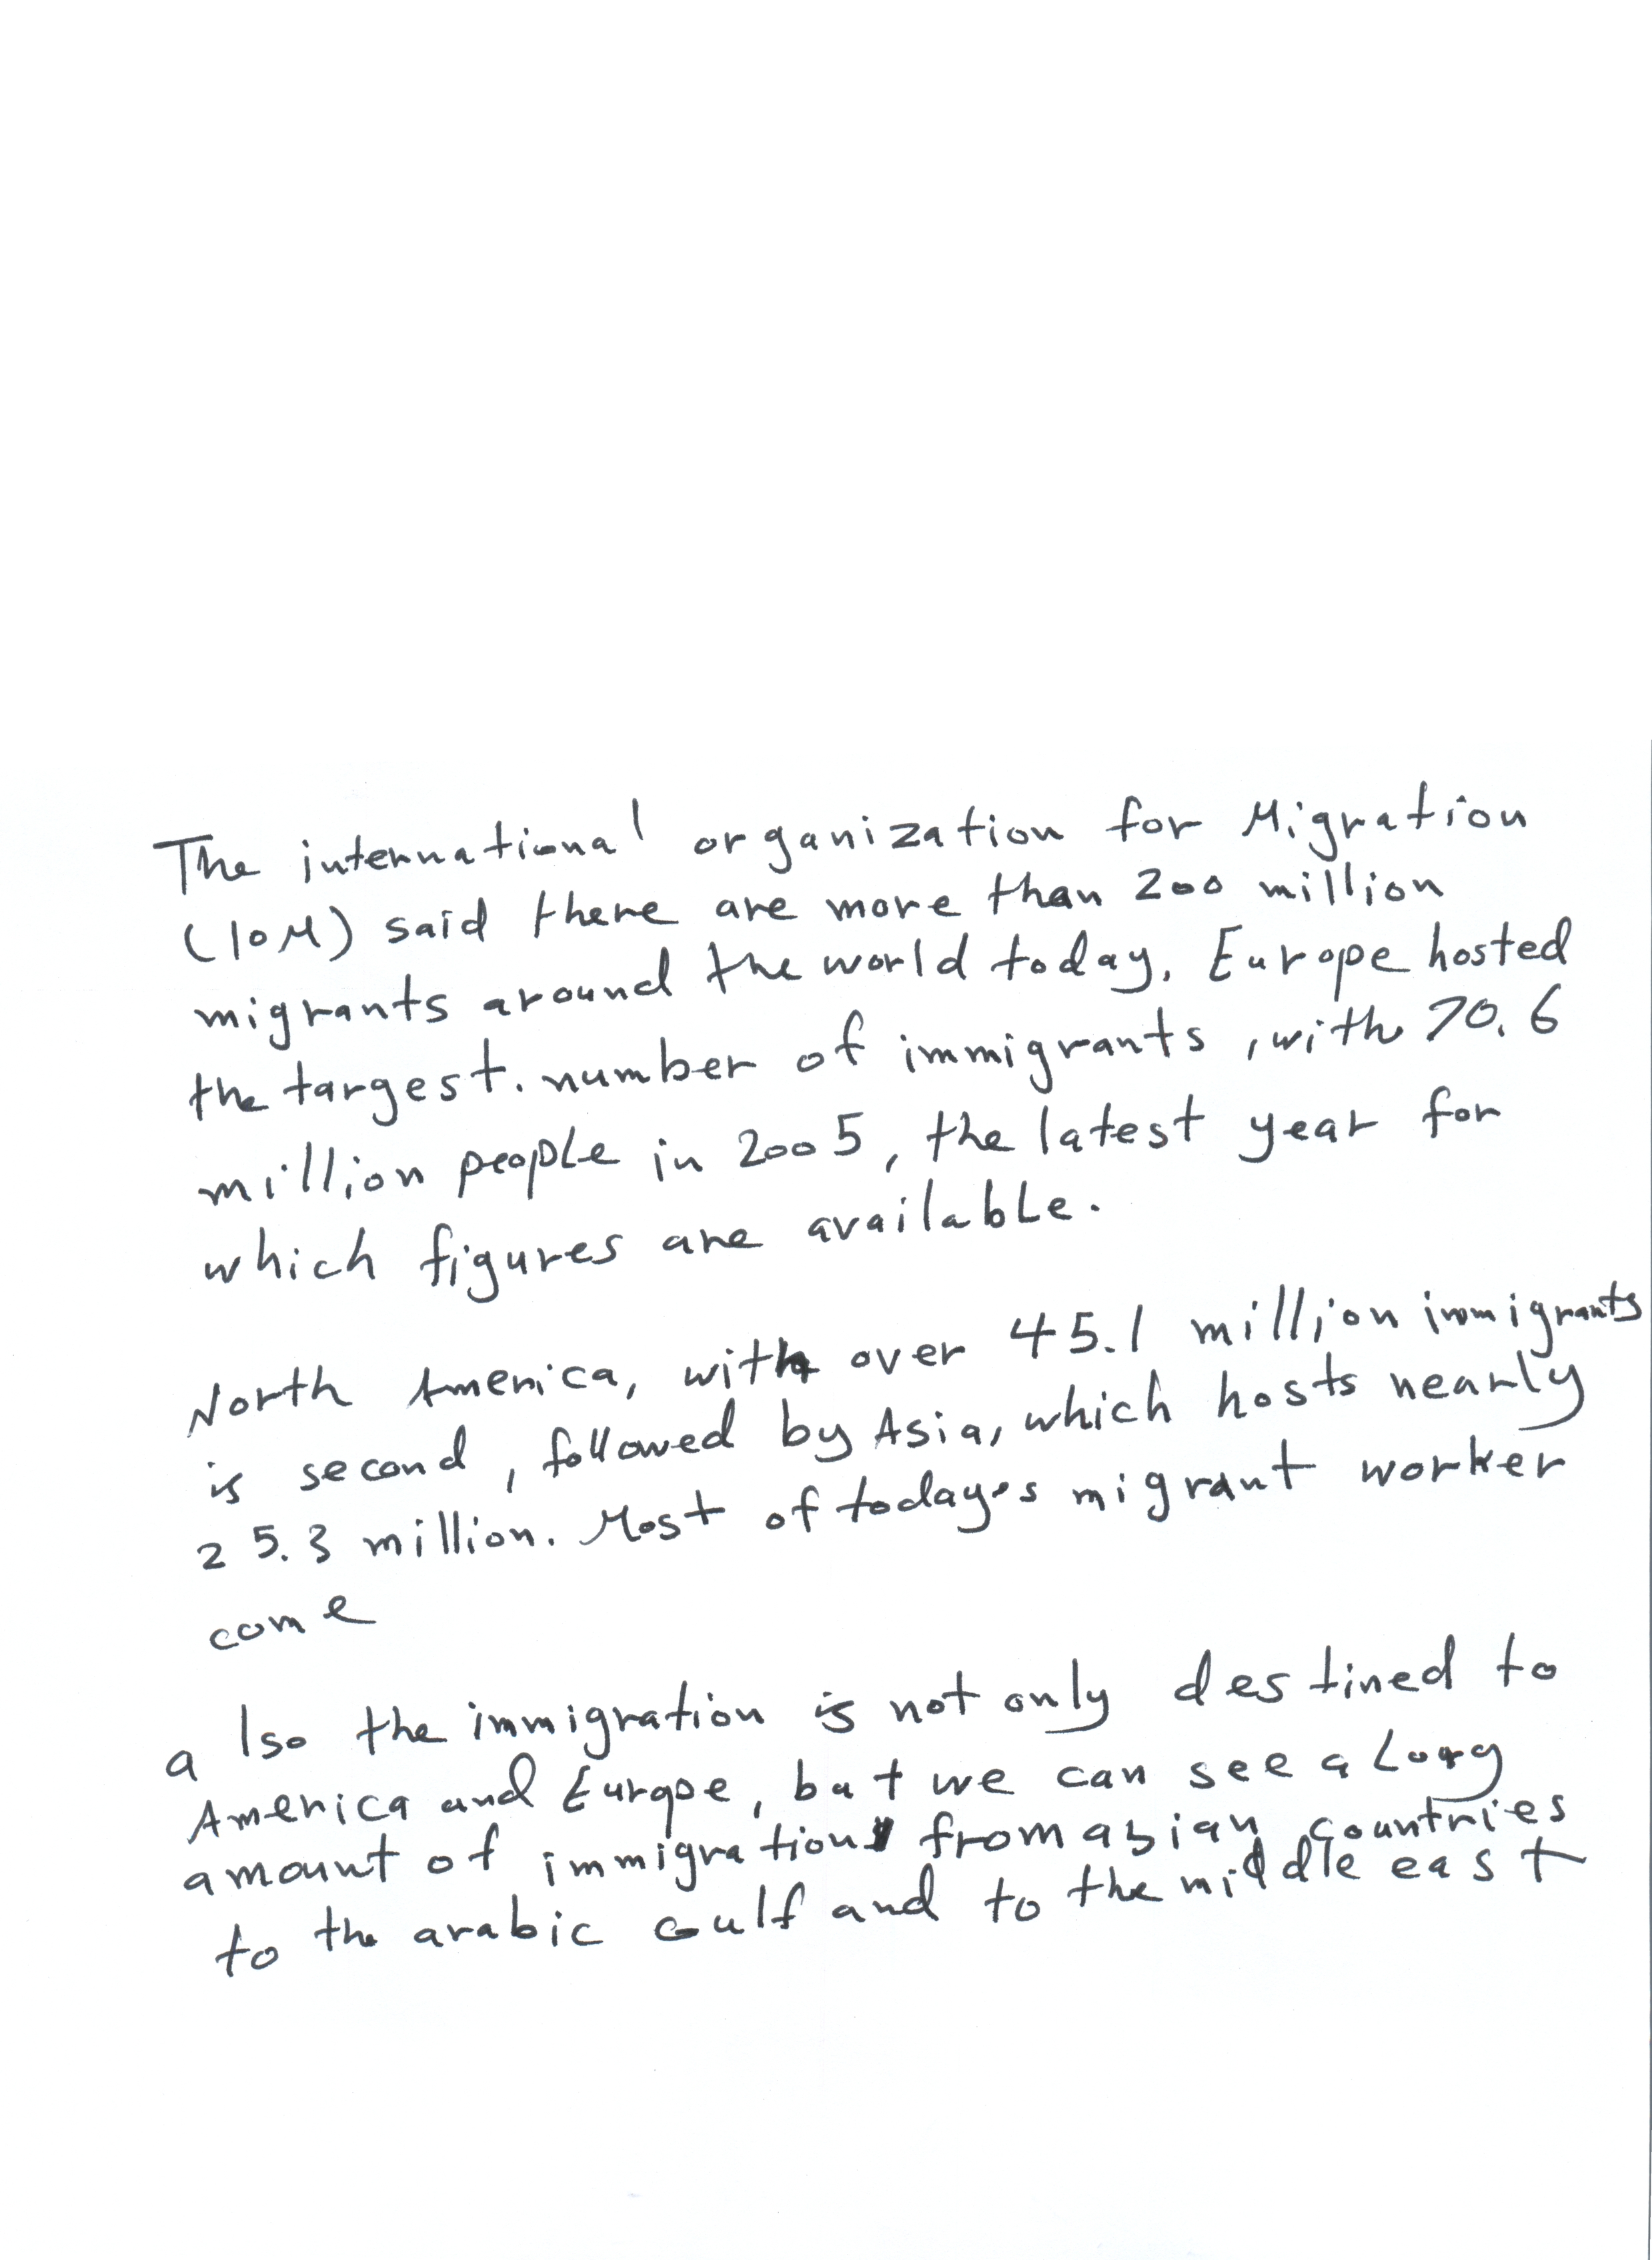 The international organization for Migration
(IOM) said there are more than 200 million
migrants around the world today. Europe hosted
the targest. number of immigrants, with 70.6
million people in 2005, the latest year for
which figures are available.
North America, with over 45.1 million immigrants
is second, followed by Asia, which hosts nearly
25.3 million. Most of today's migrant worker
come
also the immigration is not only destined to
America and Europe, but we can see a
amount of immigration from asian countries
to the arabic Gulf and to the middle east